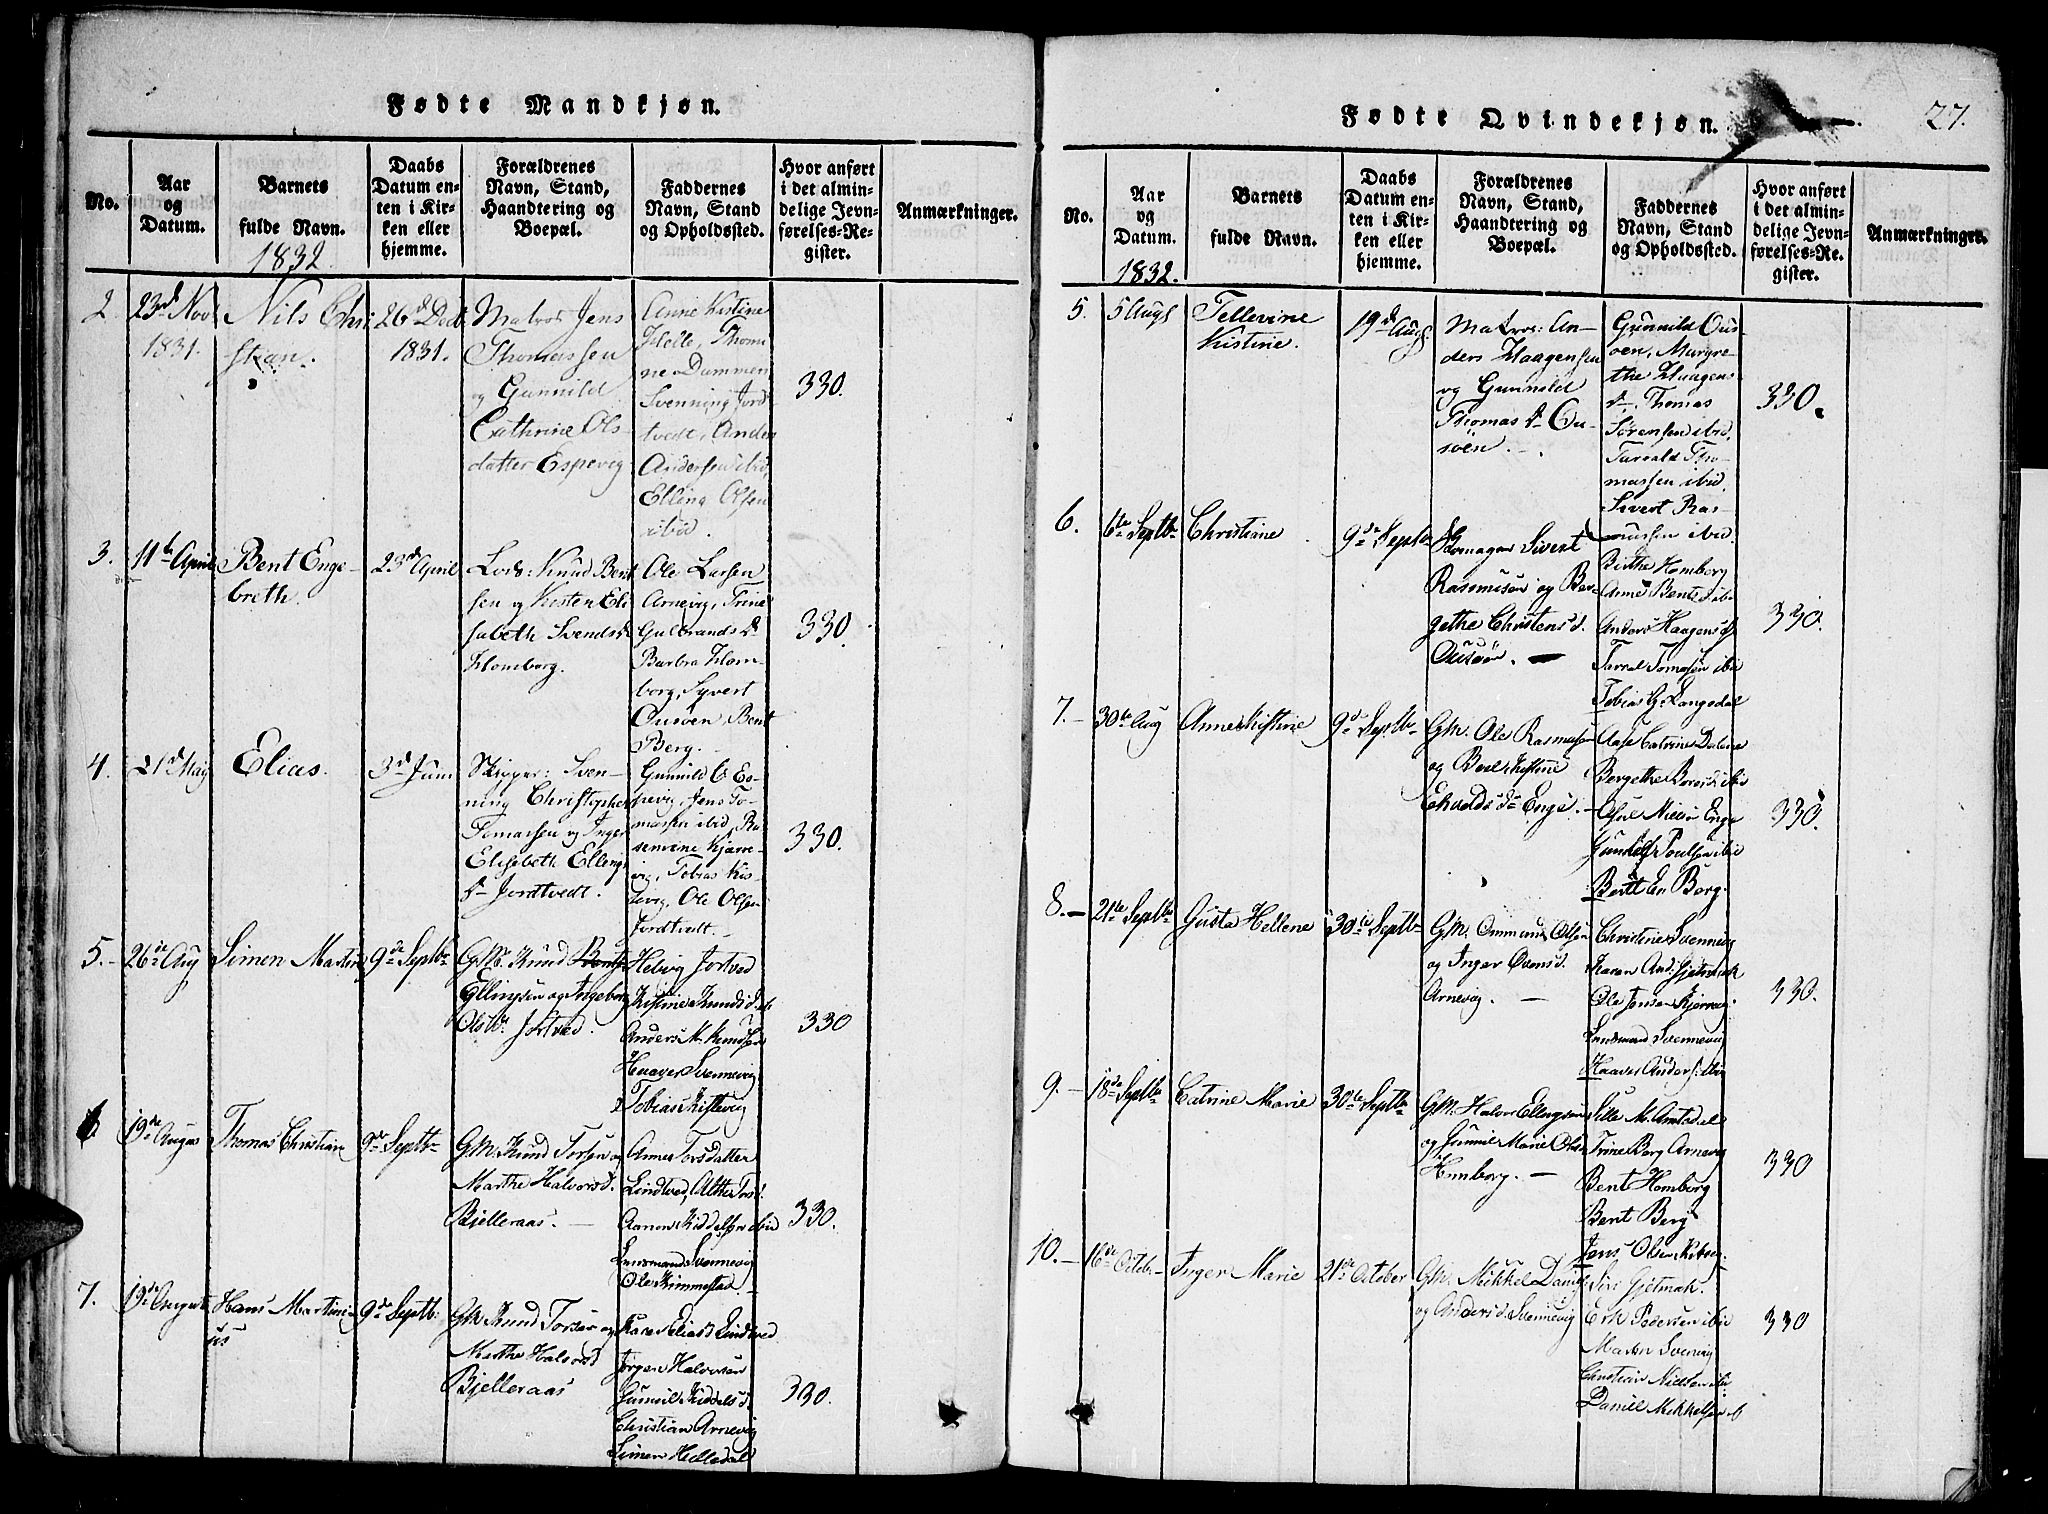 Fødte Mandkjøn.
No.
Aar
og
Datum.
Barnets
fulde Navn.
1832
Daabs
Datum en-
ten i Kir-
ken eller
hjemme.
Forældrenes
Navn, Stand,
Haandtering og
Boepæl.
Faddernes
Navn, Stand
og Opholdssted.
Hvor anført
i det almin-
delige Jevn-
førelses-Re-
gister.
Anmærkninger.
2.
23d Nov
1831.
Nils Chri
stian.
26d Decb
1831.
Matros Jens
Thomassen
og Gunnild
Cathrine Ols-
datter Espevig
Anne Kistine
Helle, Thomi
ne Dammen
Svenning Jord
tvedt, Anders
Andersen ibid,
Elling Olsen
ibid.
330.
3.
11te April
Bent Enge-
breth.
23d April
Lods: Knud Bent
sen og Kisten Eli
sabeth Svendsd
Homborg.
Ole Larsen
Arnevig, Trine
Gulbrandsd
Barbra Hom-
borg, Syvert
Ousöen, Bent
Berg.
330.
4.
21d May
Elias.
3d Juni
Skipper: Sven-
ning Christopher
Tomassen og Inger
Elisabeth Ellings
d Jordtvedt.
Gunnild O Es-
pevig, Jens To-
massen ibid, Ra
senvine Kjære-
vig, Tobias Kis-
tevig, Ole Olsen
Jordtvedt.
330.
5.
26de Aug
Simen Martin
9de Septbr
GM. Knud Bentse
Ellingsen og Ingeborg
Olsdr Jortved.
Helvig Jortved
Kistine Knudsd.
Anders M. Knudsen
Haaver Svennevig
Tobias Kistevig
330
6.
19de August
Thomas Christian
9de Septbr
GM. Knud Torsen og
Marthe Halvorsd.
Bjelleraas.
Anne Torsdatter
Lindtved, Althe Torsd.
Aanon Kiddelsen ibid
Lensmand Svennevig
Ole Rimmestad
330.
7.
19de August
Hans Martini-
us
9de Septbr
GM Knud Torsen og
Marthe Halvorsd
Bjelleraas
Karen Eliasd Lindtved
Jörgen Halvorsen
Gunnil Kiddelsd.
Christian Arnevig
Simen Hilledal
330.
Fødte Qvindekjøn.
27.
No.
Aar
og
Datum.
1832.
Barnets
fulde Navn.
Daabs
Datum en-
ten i Kir-
ken eller
hjemme.
Forældrenes
Navn, Stand,
Haandtering og
Boepæl.
Faddernes
Navn, Stand
og Opholdssted.
Hvor anført
i det almin-
delige Jevn-
førelses-Re-
gister.
Anmærkninger.
5.
5 Augs
Tellevine
Kistine.
19d Augs.
Matros: An-
ders Haagensen
og Gunnild
Thomas d Ou-
söen.
Gunnild Ous-
öen, Margre-
the Haagens
d, Thomas
Sörensen ibid,
Tarald Tho-
massen ibid.
Sivert Ras-
mussen ibid.
330.
6.
6te Septbr
Christiane
9de Septbr
Sivert
Rasmusön og Ber-
gethe Christensd.
Ousöen.
Birthe Homborg
Anne Bentsd ibid
Anders Haagens
Tarral Tomasön ibid
Tobias G. Langedal
330.
7.
30te Aug
Anne Kistine
9de Septbr
GM. Ole Rasmusen
og Berl. Kistine
Ehvaldsdr Enge.
Aase Catrine Dalene
Bergethe Borersd ibid
Ole Nielsen Enge
Gunkel Poulsen ibid
Bertil En Berg.
330.
8.
21te Septbr
Gusta Hellene
30te Septbr
GM. Ommund Olsen
og Inger Ovensd.
Arnevig.
Christine Svennevig
Karen And. Gjetmak
Ole Jensen Kjörrevig.
Lensmand Svennevig
Haaver Anders. ibid
330.
9.
18de Septbr
Catrine Marie
30te Septbr
GM. Halvor Ellingsen
og Gunnil Marie Olsd
Homborg.
Sille M. Amtedal
Trine Berg Arnevig
Bent Homborg
Bent Berg
Jens Olsen
330
10.
16de Octobr
Inger Marie
21de October
GM. Mikkel Daniels
og Andersd. Svennevig
Siri Gjetmak.
Erik Pedersen ibid
Maren Svenvig
Christian Nielsen ibi
Daniel Mikkelsen ib
330